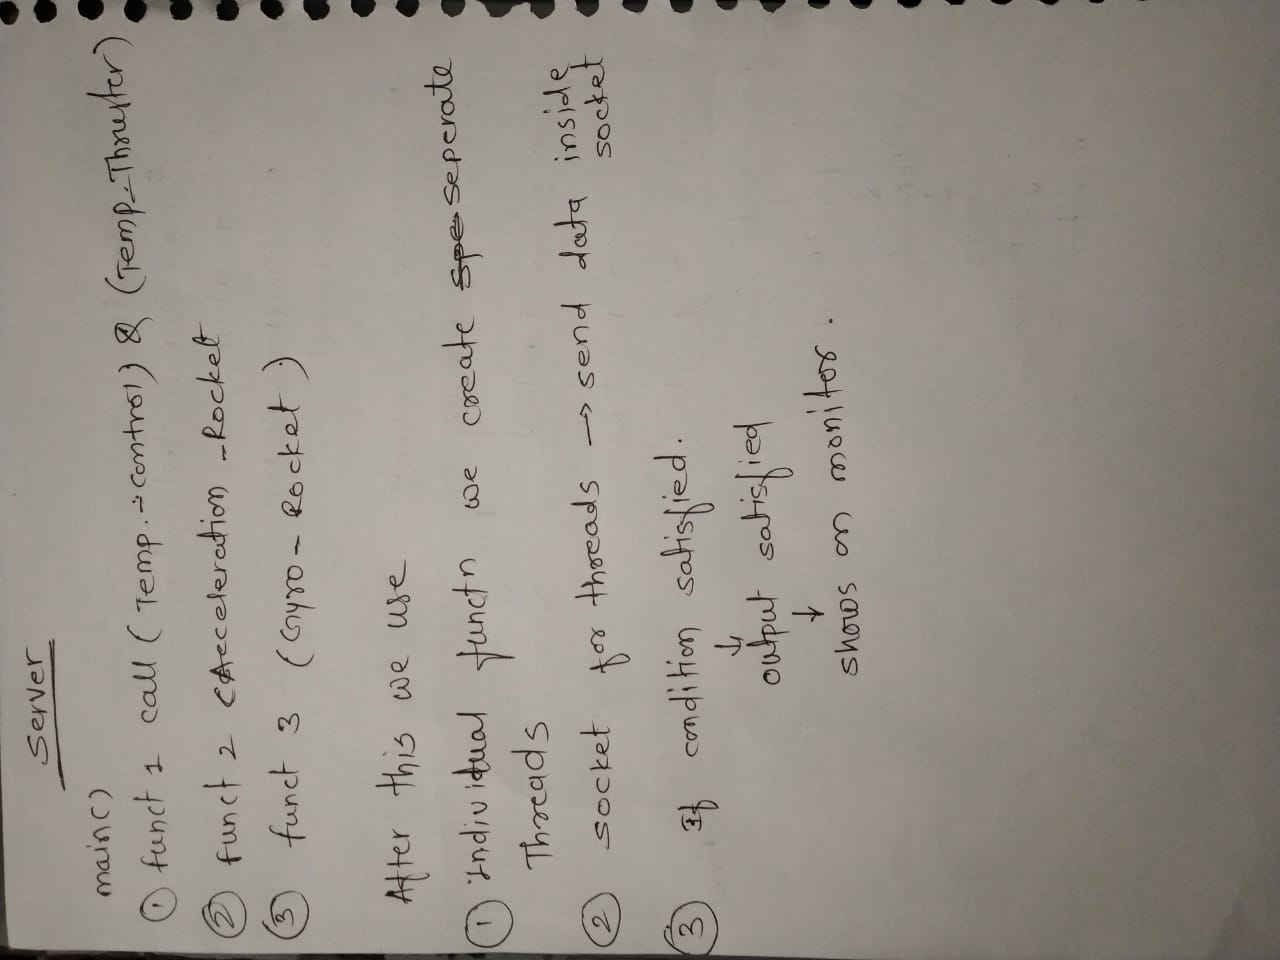 Server
main()
① funct 1 call (Temp.-control) & (Temp-Thruster)
② funct 2 (Acceleration -Rocket
③ funct 3 (Gyro-Rocket).
After this we use
① individual functn we create spe seperate
Threads
② socket for threads → send data inside
socket
③ If condition satisfied.
↓
output satisfied
↓
shows on monitor.